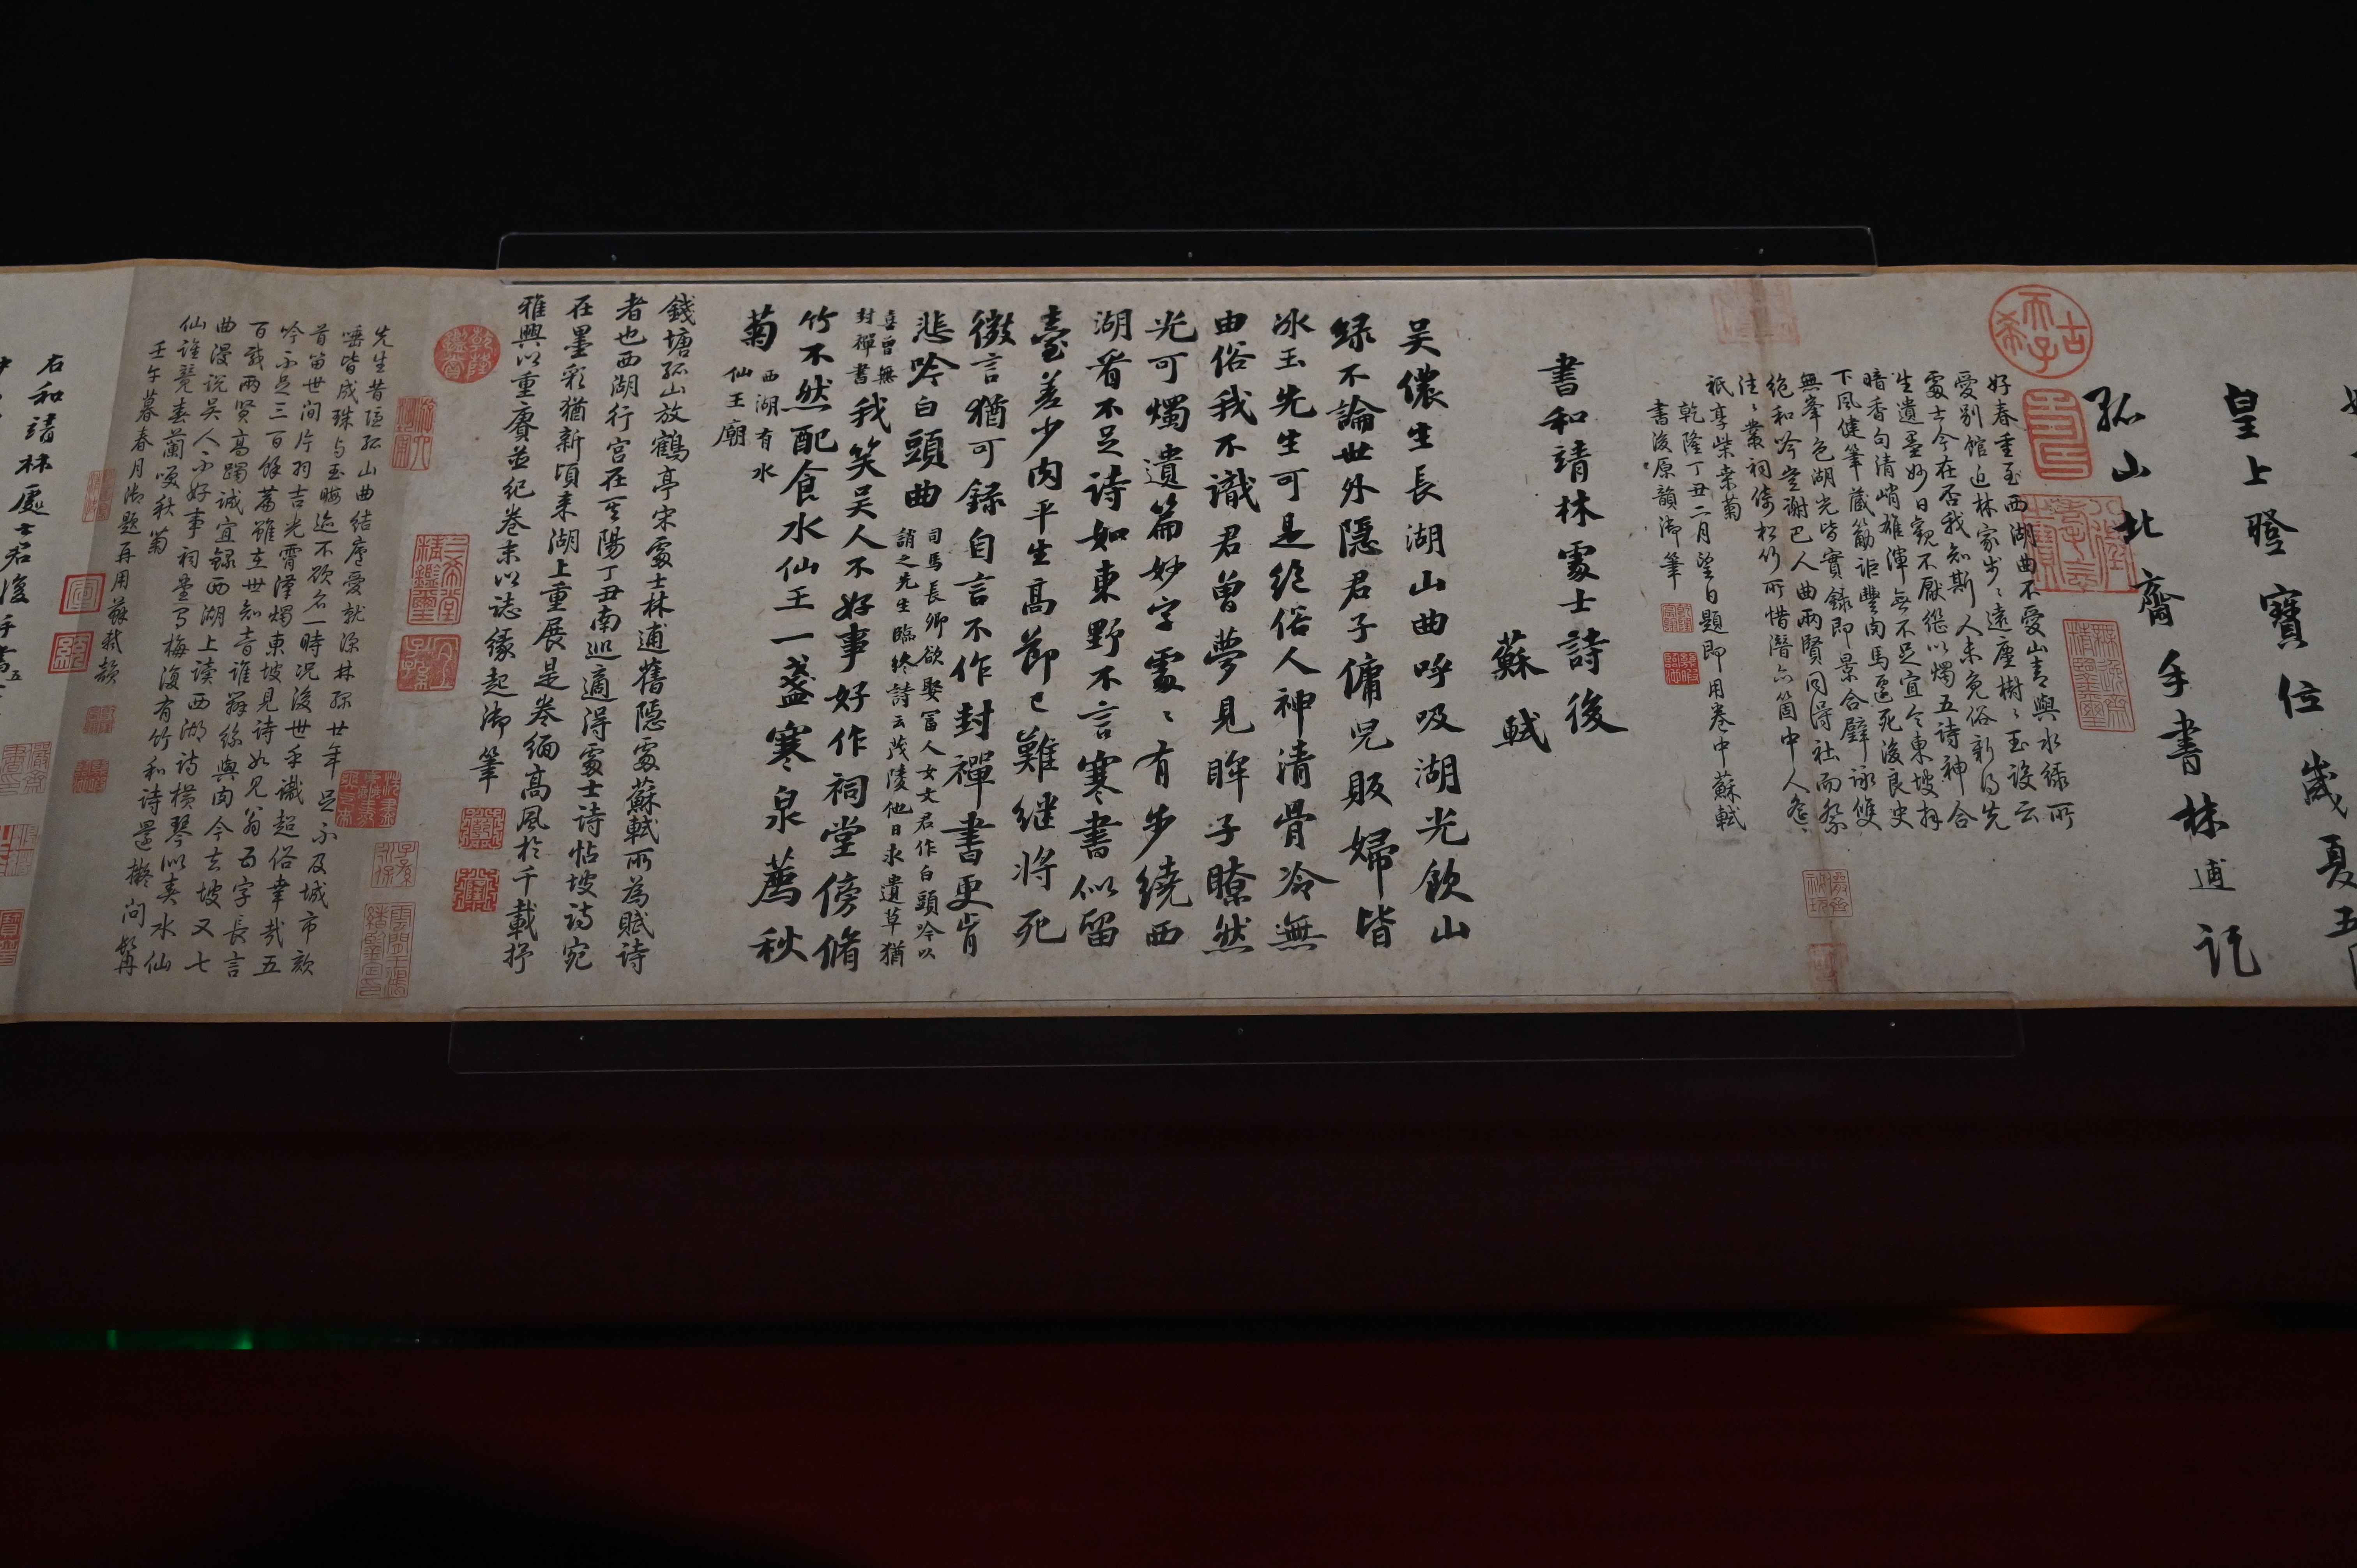 皇上登寶位歲夏五
孤山北齋手書林逋記
好春重至西湖曲不愛山青與水綠所
愛別館近林家步〻遠塵樹〻玉設云
處士今在否我知斯人未免俗新得先
生遺墨妙日觀不厭繼以燭五詩神合
暗香句清峭雄渾無不足宜令東坡拜
下風健筆藏筋詎豐肉馬遷死後良史
無峯色湖光皆實錄即景合璧詠雙
絕和吟豈謝巴人曲兩賢同得社而祭
往〻叢祠倚松竹所惜潛虬箇中人
祇享柴桑菊
乾隆丁丑二月望日題即用卷中蘇軾
書後原韻御筆
書和靖林處士詩後
蘇軾
吳儂生長湖山曲呼吸湖光飲山
綠不論世外隱君子傭兒販婦皆
冰玉先生可是絕俗人神清骨冷無
由俗我不識君曾夢見眸子瞭然
光可燭遺篇妙字處〻有步繞西
湖看不足詩如東野不言寒書似留
臺差少肉平生高節已難繼將死
微言猶可錄自言不作封禪書更肯
悲吟白頭曲
司馬長卿欲娶富人女文君作白頭吟以
誚之先生臨終詩云茂陵他日求遺草猶
喜曾無
封禪書
我笑吳人不好事好作祠堂傍脩
竹不然配食水仙王一盞寒泉薦秋
菊
西湖有水
仙王廟
錢塘孤山放鶴亭宋處士林逋舊隱處蘇軾所為賦詩
者也西湖行宮在其陽丁丑南巡適得處士詩帖坡詩宛
在墨彩猶新頃來湖上重展是卷緬高風於千載抒
雅興以重賡並紀卷末以誌緣起御筆
先生昔隱孤山曲結廬愛就深林綠廿年足不及城市欬
唾皆成珠與玉晦迹不欲名一時況後世乎識超俗幸哉五
首留世間片羽吉光霄漢燭東坡見詩如見翁百字長言
吟不足三百餘篇雖在世知音誰辨絲與肉今去坡又七
百載兩賢高躅誠宜錄西湖上讀西湖詩橫琴似奏水仙
曲漫說吳人不好事祠壘寫梅復有竹和詩還擬問髯
仙誰競春蘭與秋菊
壬午暮春月御題再用蘇軾韻
右和靖林處士君復手書五